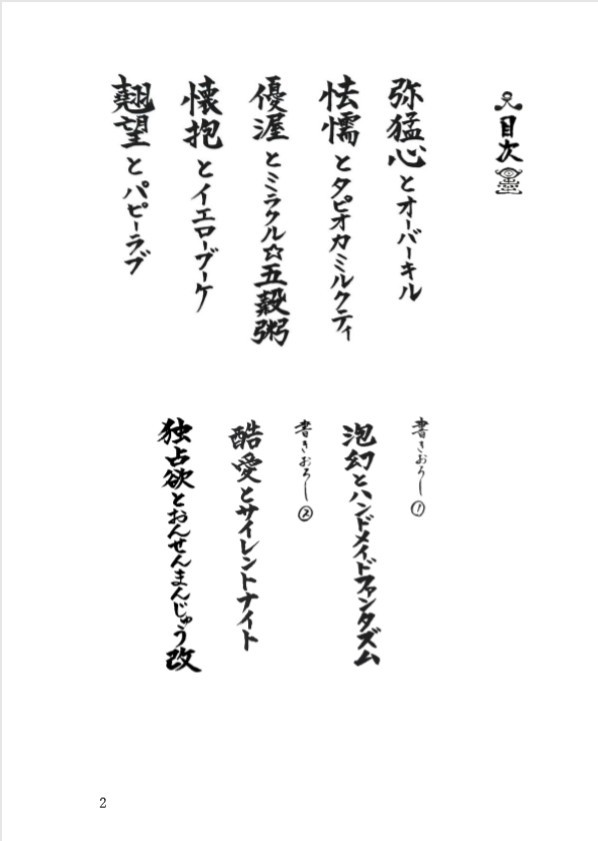 目次
弥猛心とオーバーキル
怯懦とタピオカミルクティ
優渥とミラクル☆五穀粥
懐抱とイエローブーケ
翹望とパピーラブ
書きおろし①
泡幻とハンドメイドファンタズム
書きおろし②
酷愛とサイレントナイト
独占欲とおんせんまんじゅう改
2